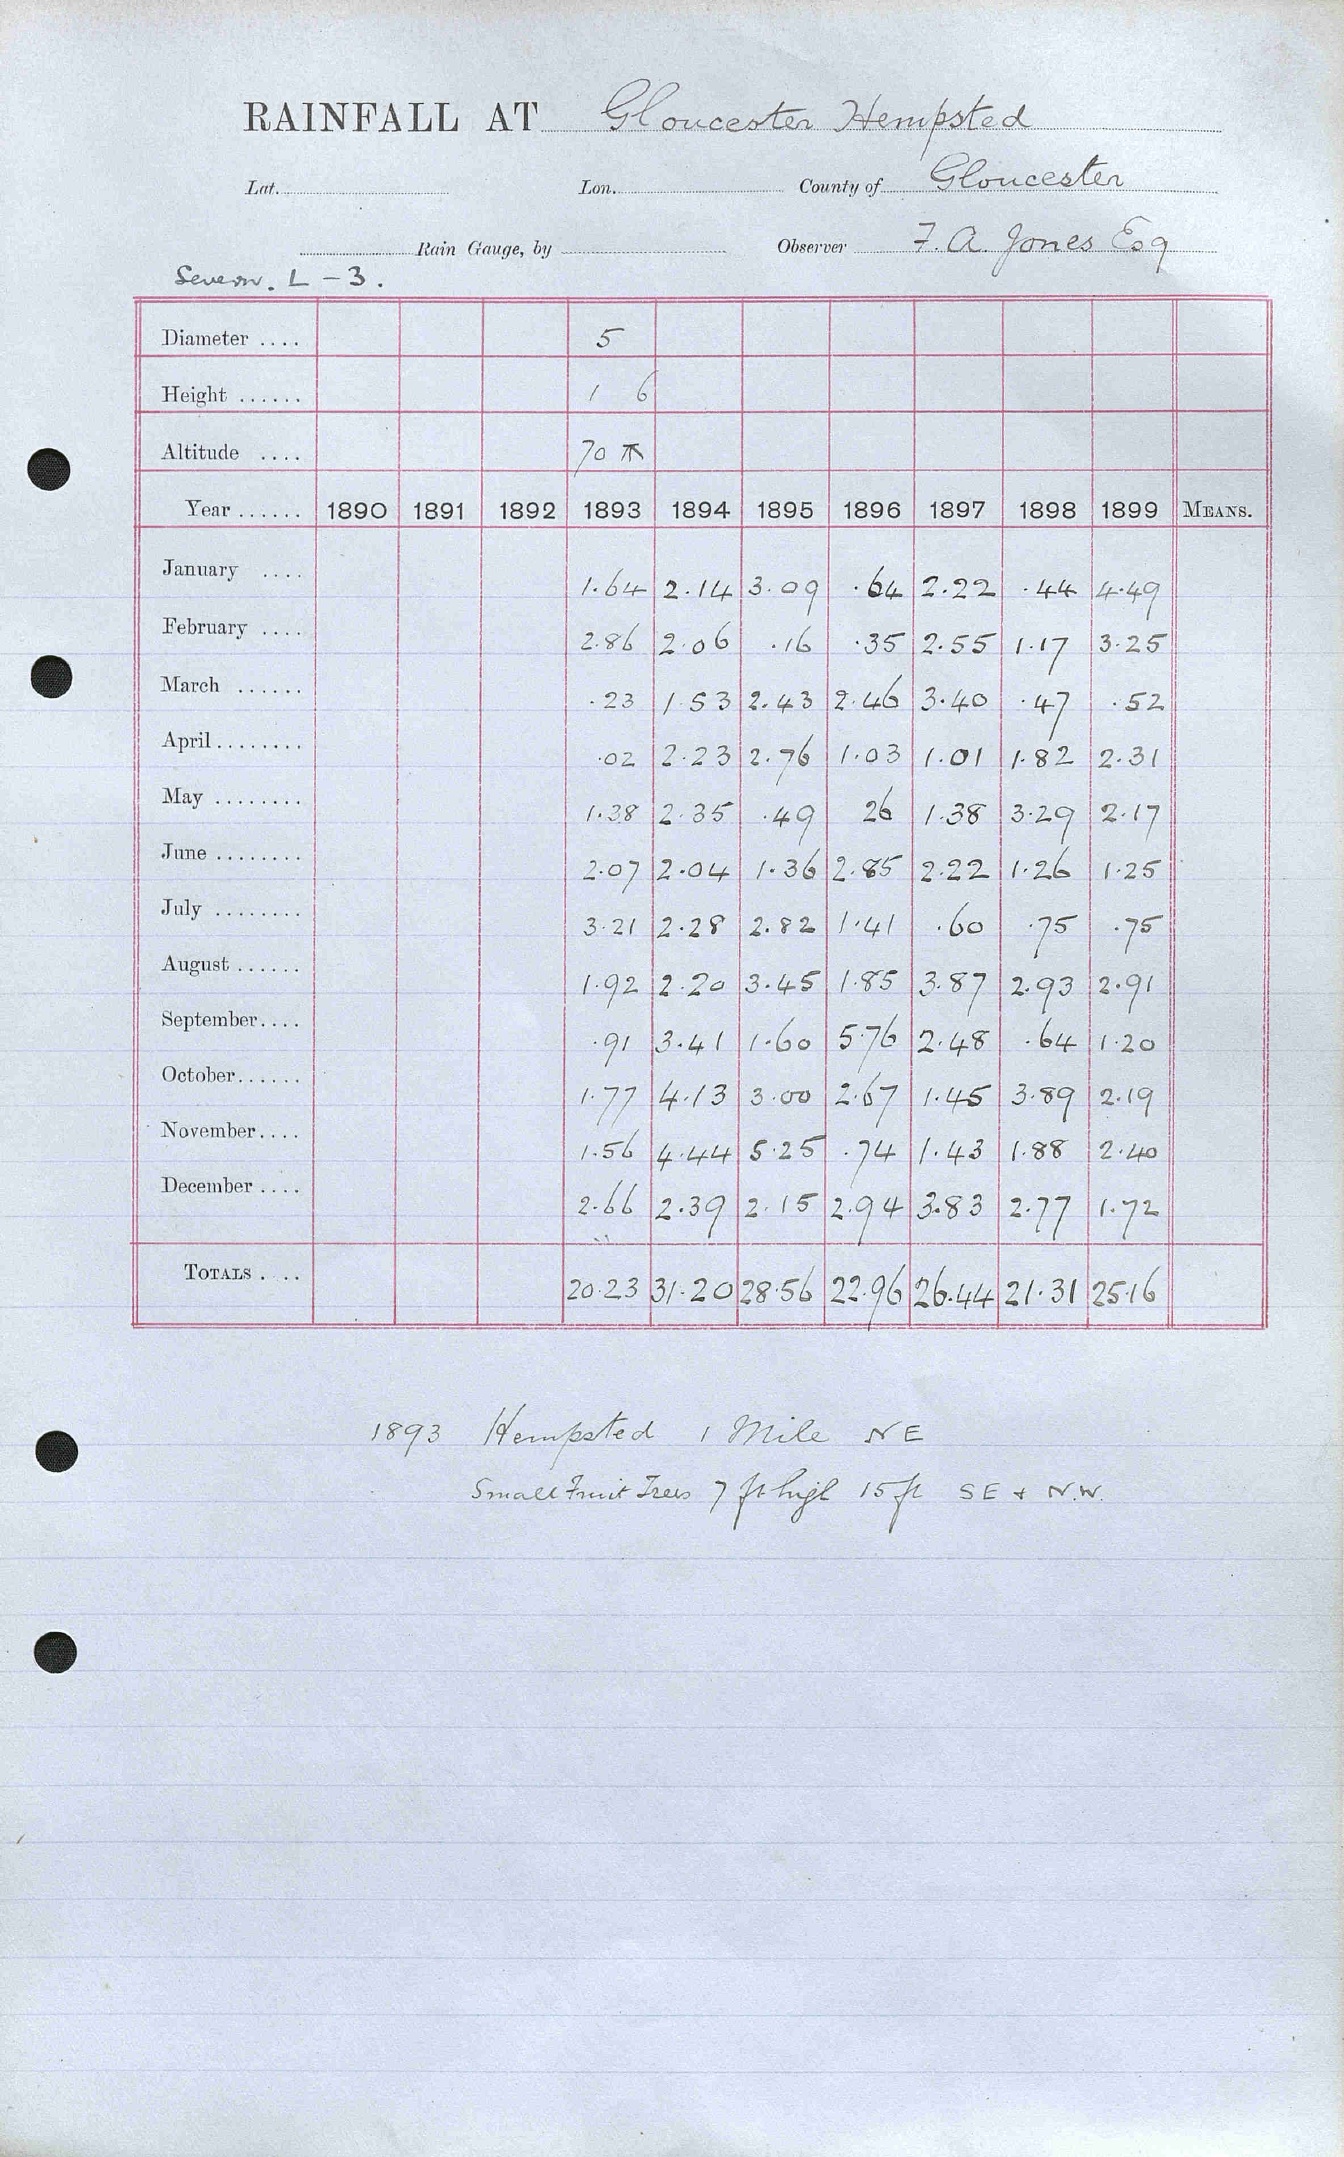 RAINFALL AT Gloucester Hempsted
Lat. Lon. County of Gloucester
Rain Gauge, by Observer F. A. Jones Esq
Severn. L - 3.
Diameter .... 5
Height ...... 1 6
Altitude .... 70
Year ...... 1890 1891 1892 1893 1894 1895 1896 1897 1898 1899 MEANS.
January .... 1.64 2.14 3.09 .64 2.22 .44 4.49
February .... 2.86 2.06 .16 .35 2.55 1.17 3.25
March ...... .23 1 53 2.43 2.46 3.40 .47 .52
April........ .02 2.23 2.76 1.03 1.01 1.82 2.31
May ........ 1.38 2.35 .49 26 1.38 3.29 2.17
June ........ 2.07 2.04 1.36 2.85 2.22 1.26 1.25
July ........ 3.21 2.28 2.82 1.41 .60 .75 .75
August ...... 1.92 2.20 3.45 1.85 3.87 2.93 2.91
September.... .91 3.41 1.60 5.76 2.48 .64 1.20
October...... 1.77 4.13 3.00 2.67 1.45 3.89 2.19
November.... 1.56 4.44 5.25 .74 1.43 1.88 2.40
December .... 2.66 2.39 2.15 2.94 3.83 2.77 1.72
TOTALS . .. 20.23 31.20 28.56 22.96 26.44 21.31 25.16
1893 Hempsted 1 Mile NE
Small Fruit Trees 7 ft high 15 ft SE + N.W.